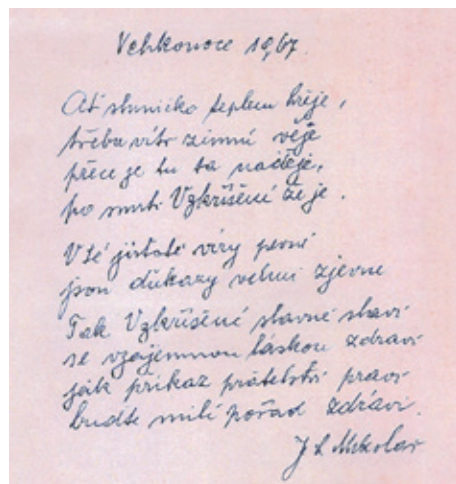 Velikonoce 1967.
Ať sluníčko teplem hřeje,
třeba vítr zimní věje
přece je tu ta naděje,
po smrti Vzkříšení že je.
V té jistotě víry pevné
jsou důkazy velmi zjevné
Tak Vzkříšení slavné slaví
se vzájemnou láskou zdraví
jak příkaz přátelství praví
buďte milí pořád zdrávi.
J L Mikolar